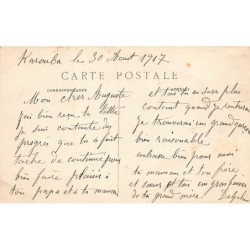 Karouba le 30 Aout 1917
CARTE POSTALE
CORRESPONDANCE
Mon cher Auguste
j'ai bien reçu ta lettre
je suis contente des
progrès que tu à fait
tache de continuer pour
bien faire plaisir à
ton papa et à ta maman
et toi tu en sera plus
content quand je rentrerai
je trouverai un grand garçon
bien raisonable
embrasse bien pour moi
ta maman et ton père
et sœurs et toi un gros
de ta grand mère